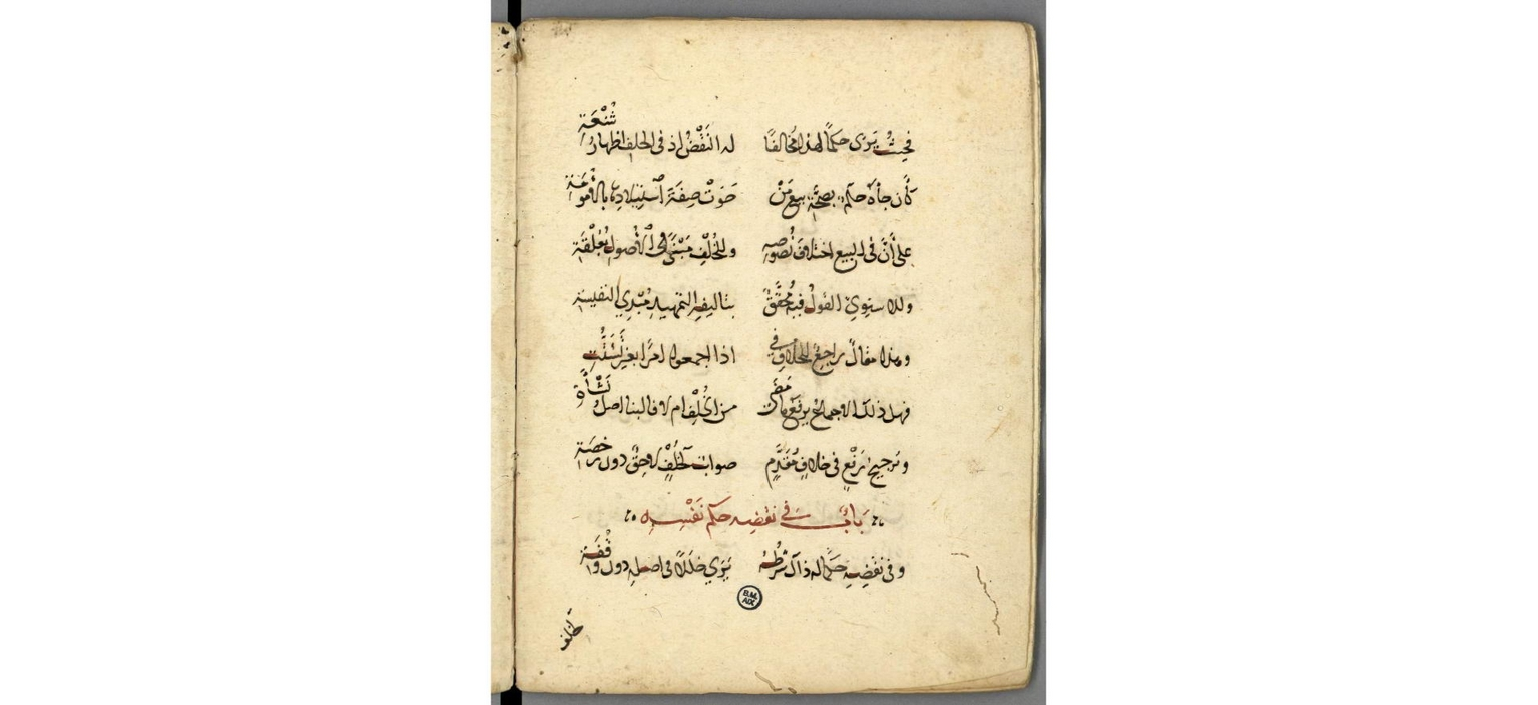 فحيث يَرَى حكمًا لهذا مُخالفًا له النَقْضُ اذ في الخلف اظهارُ شُنْعَةِ
كأن جاءه حكم بصحّة بيع مَنْ حَوَتْ صِفَةَ استيلادِ بالاُمُومَةِ
على أنّ في البيع اختلافَ نُصوصِه وللخُلْفِ مَبْنًى في الاُصول بعُلْقَةِ
وللاسنويّ القولُ فيه مُحَقَّقٌ بتاليفه التمهيد مُبْدِي النفيسة
وهذا مقالٌ راجعٌ للخلاف في اذا اجمعوا امرًا بغير تَشَتُّتِ
فهل ذلك الاجماعُ يرفَعُ ما مضى من الخُلْفِ ام لا قال بنا اصلُ
وترجيحُ رَفْعٍ في خلافٍ مُقَدَّمٍ صوابٌ لخُلْفٍ لاحِقٍ دون رخصَة
بابٌ في نقضه حكم نَفْسِه
وفي نقضِه حكمًا له ذاك شرطُه يَرَى خللاً في اصله دون وَقْفَةِ
B.M. AIX